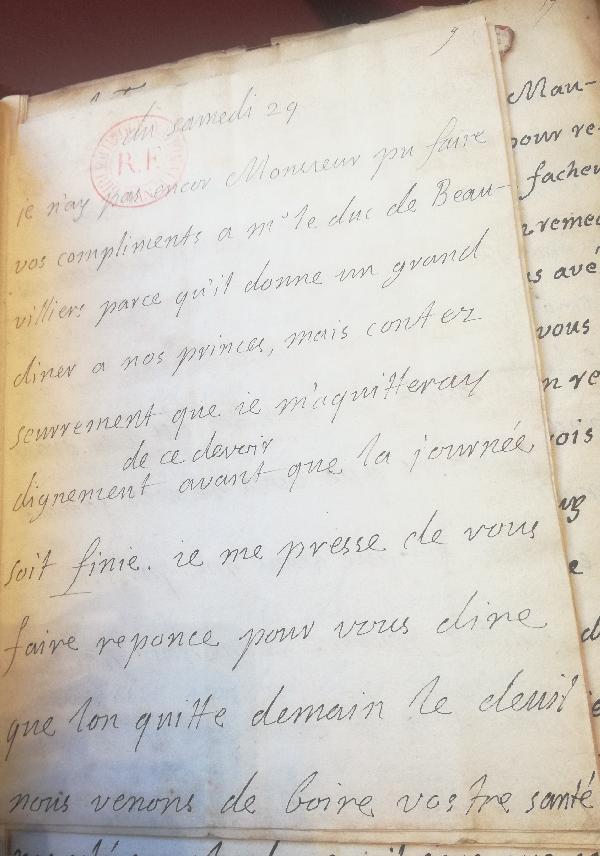 9
du samedi 29
R.F.
je n'ay pas encor Monsieur pu faire
vos compliments a mr le duc de Beau-
villiers parce qu'il donne un grand
diner a nos princes, mais contez
seurrement que ie m'aquitteray
de ce devoir
dignement avant que la journée
soit finie. ie me presse de vous
faire reponce pour vous dire
que lon quitte demain le deuil
nous venons de boire vostre santé
Mau-
pour re-
facheu
remed
s avé
vous
n re
vois